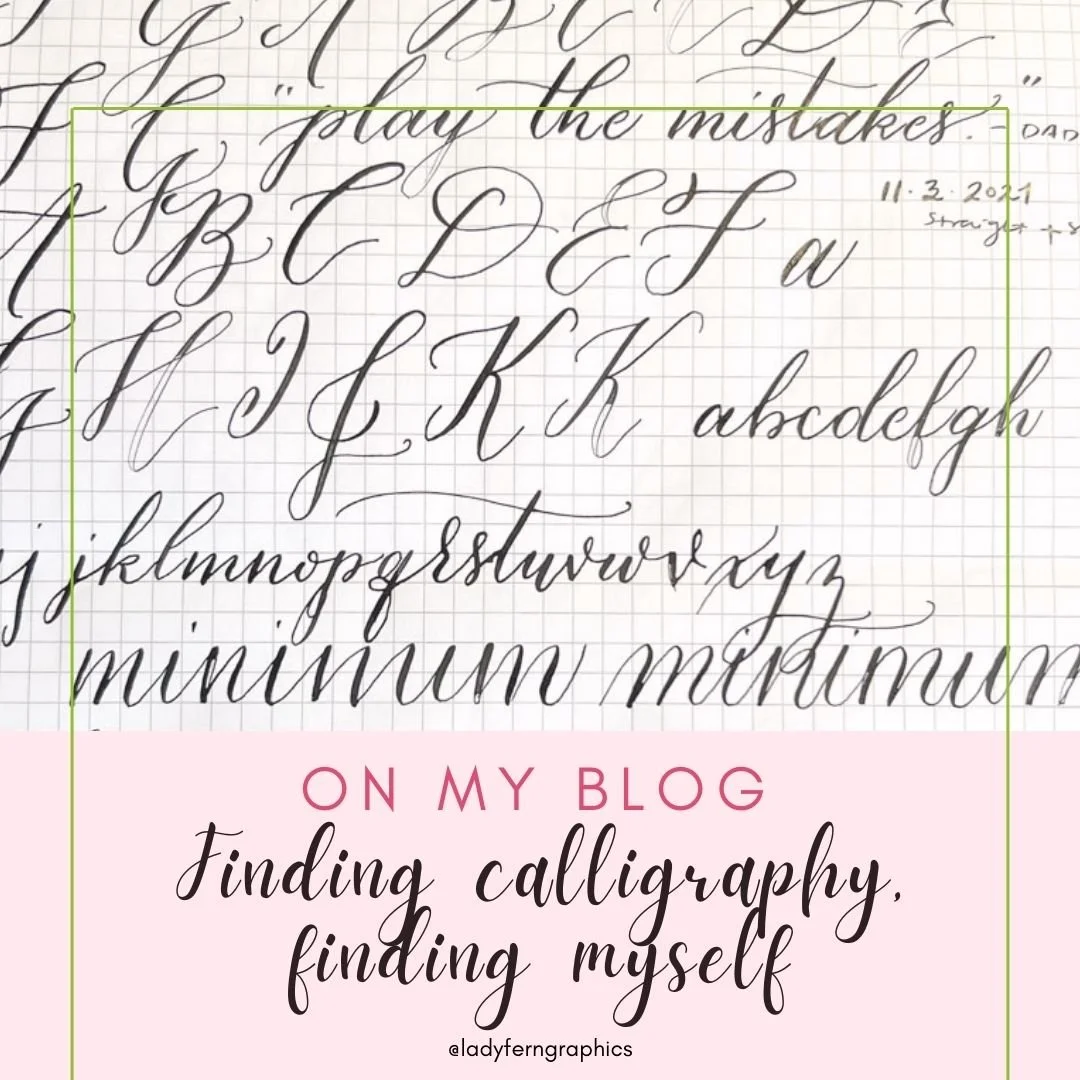 "play the mistakes." - DAD
11.3.2021
Straight +
A B C D E F a
H I J K K abcdefgh
ij jklmnopqrstuvwvxyz
minimum minimum
ON MY BLOG
Finding calligraphy,
finding myself
@ladyferngraphics